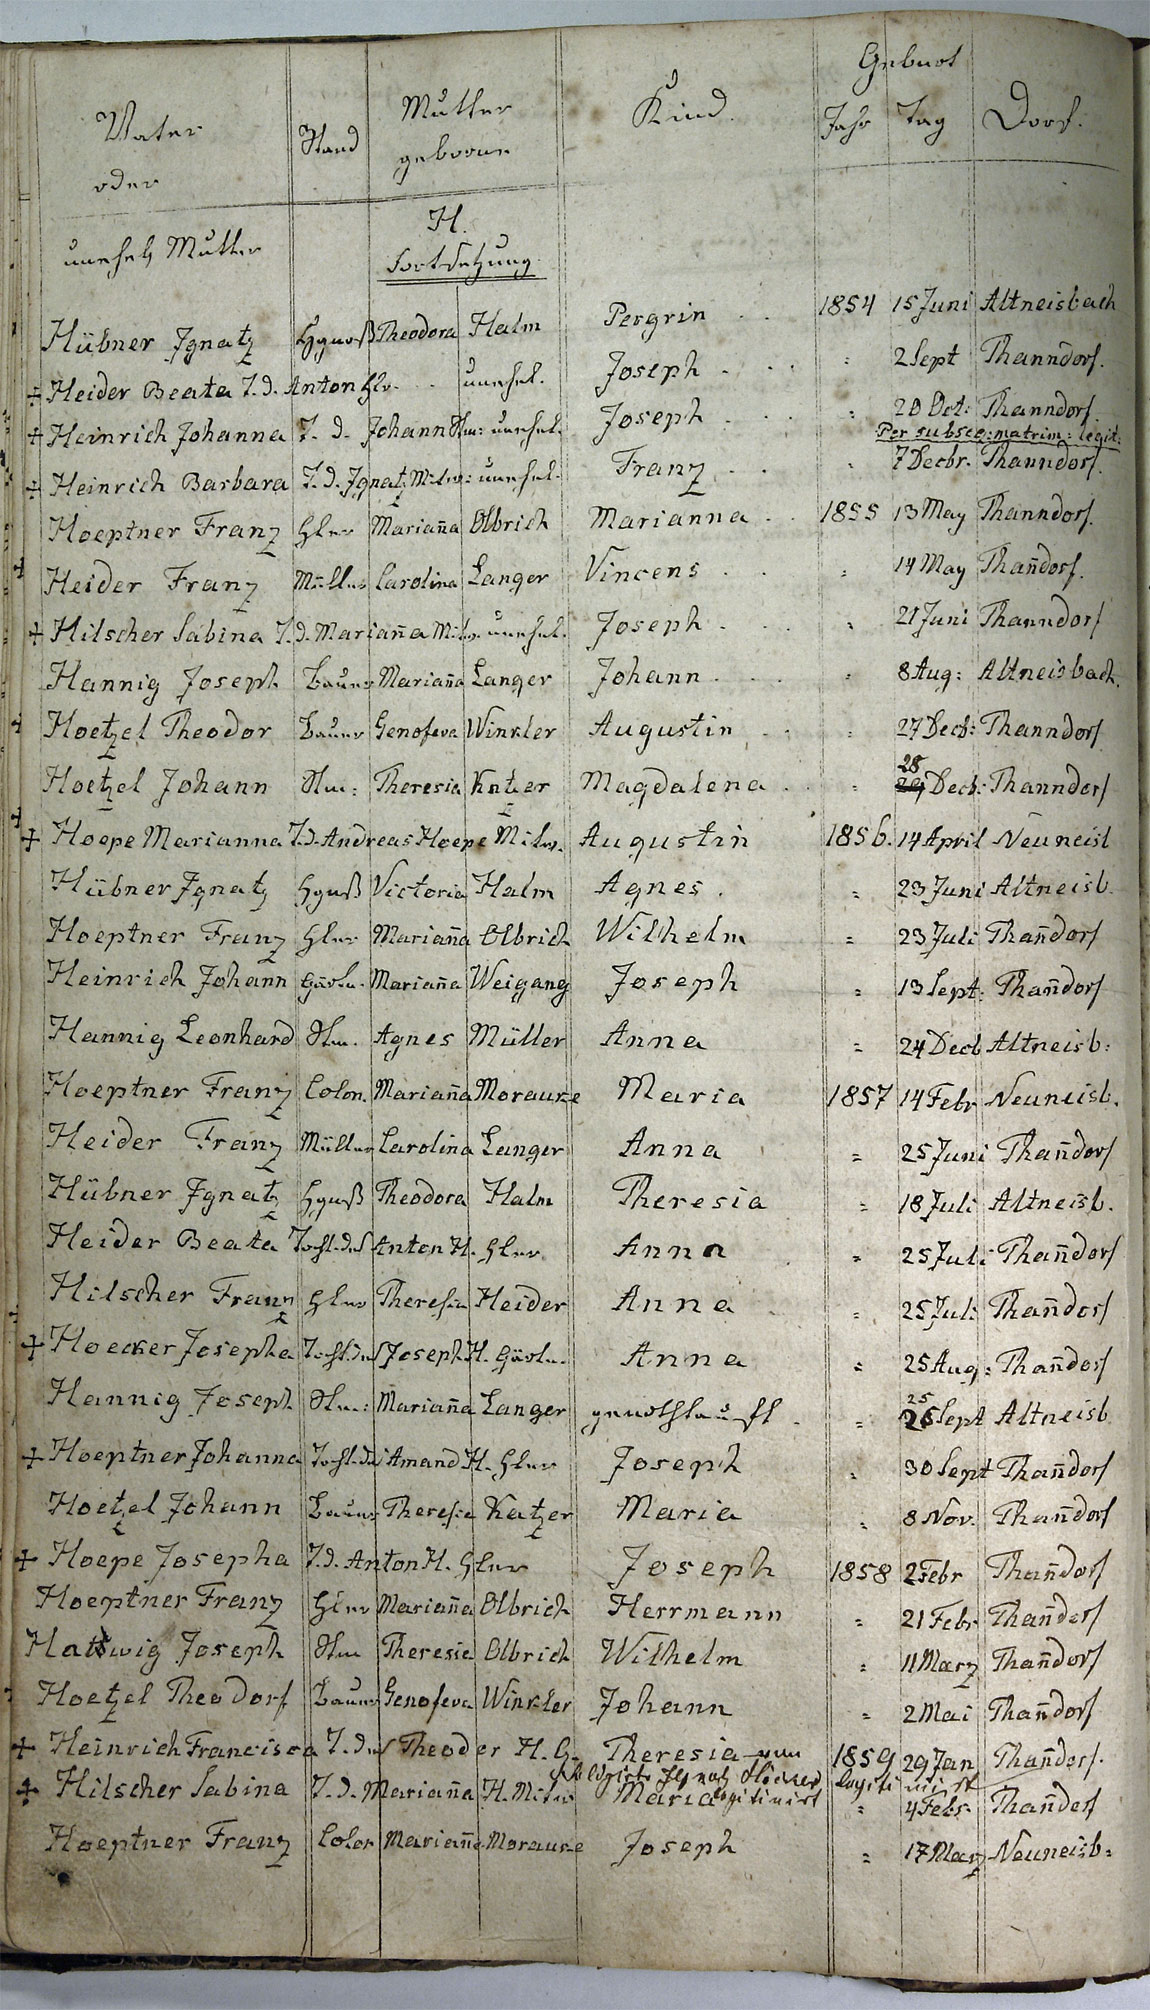 Geburt
Vater Stand Mutter Kind. Jahr Tag Dorf.
oder geborne
unehel. Mutter
H.
Fortsetzung
Hübner Ignatz Theodora Halm Pergrin . . 1854 15 Juni Altneisbach
÷ Heider Beata T. d. Anton Hlr. . . unehel. Joseph . . . = 2 Sept Thanndorf.
+ Heinrich Johanna T. d. Johann Stm: unehel. Joseph . . = 20 Oct: Thanndorf.
Per subseq: matrim: legit:
÷ Heinrich Barbara T. d. Ignatz Mitw: unehel. Franz . . = 7 Decbr. Thanndorf.
Hoeptner Franz Hler Mariana Olbrich Marianna . . 1855 13 May Thanndorf.
+ Heider Franz Müller Carolina Langer Vincens . . = 14 May Thandorf.
+ Hilscher Sabina T. d. Mariana Mitw. unehel. Joseph . . . = 21 Juni Thanndorf
Hannig Joseph Bauer Mariana Langer Johann . . . = 8 Aug: Altneisbach.
+ Hoetzel Theodor Bauer Genofeva Winkler Augustin . . = 27 Decb: Thanndorf
28
Hoetzel Johann Stm: Theresia Katzer Magdalena . . = 29 Decb: Thanndorf
+
+ Hoepe Marianna T. d. Andreas Hoepe Mitw. Augustin 1856. 14 April Neuneisb
Hübner Ignatz Victoria Halm Agnes . = 23 Juni Altneisb.
Hoeptner Franz Hler Mariana Olbrich Wilhelm = 23 Juli Thandorf
Heinrich Johann Gärtn. Mariana Weigang Joseph = 13 Sept: Thandorf
Hannig Leonhard Stm. Agnes Müller Anna = 24 Decb Altneisb:
Hoeptner Franz Colon. Mariana Morauke Maria 1857 14 Febr Neuneisb.
Heider Franz Müller Carolina Langer Anna = 25 Juni Thandorf
Hübner Ignatz Theodora Halm Theresia = 18 Juli Altneisb.
Heider Beata Tocht. des Anton H. Hler Anna = 25 Juli Thandorf
Hilscher Franz Hler Theresia Heider Anna . = 25 Juli Thandorf
+ Hoecker Josepha Tocht. des Joseph H. Gärtn. Anna = 25 Aug: Thandorf
25
Hannig Joseph Stm: Mariana Langer genothtauft . = 26 Sept Altneisb
+ Hoeptner Johanna Tocht. des Amand H. Hler Joseph = 30 Sept Thandorf
Hoetzel Johann Bauer Theresia Katzer Maria = 8 Nov. Thandorf
+ Hoepe Josepha T. d. Anton H. Hler Joseph 1858 2 Febr Thandorf
Hoeptner Franz Hler Mariana Olbrich Herrmann = 21 Febr Thandorf
Hattwig Joseph Stm Theresia Olbrich Wilhelm = 11 Marz Thandorf
Hoetzel Theodorf Bauer Genofeva Winkler Johann = 2 Mai Thandorf
+ Heinrich Francisca T. des Theoder H. G. Theresia 1859 29 Jan Thandorf.
Ignatz Höcker
+ Hilscher Sabina T. d. Mariana H. Mitw Maria legitimirt = 4 Febr Thandorf
Hoeptner Franz Color Mariana Morauke Joseph = 17 Marz Neuneisb: